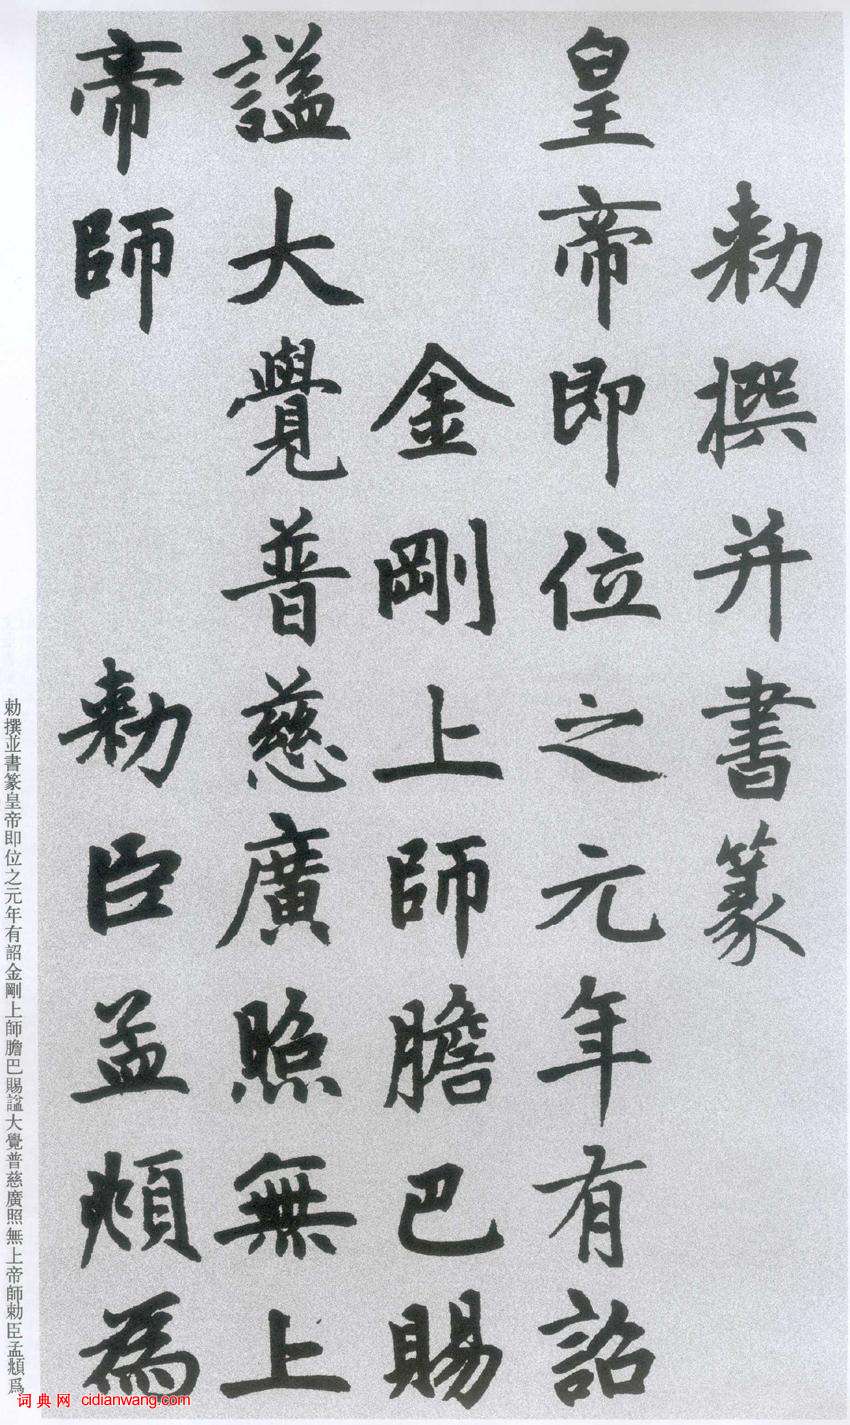 勑撰并書篆
皇帝即位之元年有詔
金剛上師膽巴賜
謚大覺普慈廣照無上
帝師
勑臣孟頫為
勅撰並書篆皇帝即位之元年有詔金剛上師膽巴賜謚大覺普慈廣照無上帝師勅臣孟頫爲
词典网 cidianwang.com